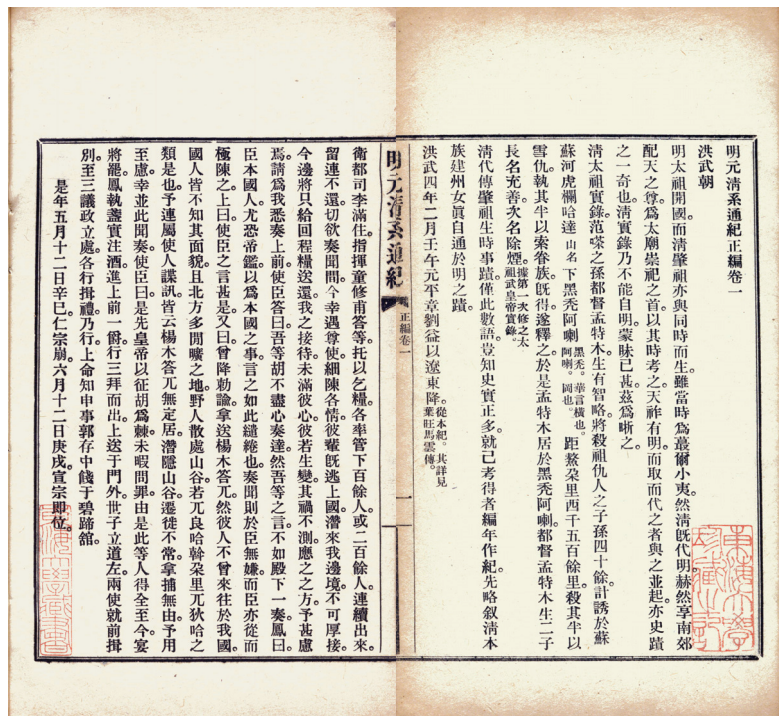 明元清系通紀正編卷一
洪武朝
明太祖開國而清肇祖亦與同時而生雖當時為蕞爾小夷然清既代明赫然享南郊
配天之尊為太廟崇祀之首以其時考之天祚有明而取而代之者與之並起亦史蹟
之一奇也清實錄乃不能自明蒙昧已甚茲為晰之
清太祖實錄范嗏之孫都督孟特木生有智略將殺祖仇人之子孫四十餘計誘於蘇
蘇河虎欄哈達山名下黑禿阿喇黑禿華言橫也阿喇岡也距鰲朵里西千五百餘里殺其半以
雪仇執其半以索眷族既得遂釋之於是孟特木居於黑禿阿喇都督孟特木生二子
長名充善次名除煙據第一次修之太祖武皇帝實錄
清代傳肇祖生時事蹟僅此數語豈知史實正多就已考得者編年作紀先略叙清本
族建州女眞自通於明之蹟
洪武四年二月壬午元平章劉益以遼東降從本紀其詳見葉旺馬雲傳
明元清系通紀 正編卷一 一
衛都司李滿住指揮童修甫答等托以乞糧各率管下百餘人或二百餘人連續出來
留連不還切欲奏聞問今幸遇尊使細陳各情彼輩既逃上國潛來我邊境不可厚接
今邊將只給回程糧送還我之接待未滿彼心彼若生變其禍不測應之之方予甚慮
焉請為我悉奏上前使臣答曰吾等胡不盡心奏達然吾等之言不如殿下一奏鳳曰
臣本國人尤恐帝鑑以為本國之事言之如此繾綣也奏聞則於臣無嫌而臣亦從而
極陳之上曰使臣之言甚是又曰曾降勅諭拿送楊木答兀然彼人不曾來往於我國
國人皆不知其面貌且北方多閒曠之地野人散處山谷若兀良哈斡朵里兀狄哈之
類是也予連屬使人諜訊皆云楊木答兀無定居潛隱山谷遷徙不常拿捕無由予用
至慮幸並此聞奏使臣曰是先皇帝以征胡為棘未暇問罪由是此等人得全至今宴
將罷鳳執盞實注酒進上前一爵行三拜而出上送于門外世子立道左兩使就前揖
別至三議政立處各行揖禮乃行上命知申事郭存中餞于碧蹄舘
是年五月十二日辛巳仁宗崩六月十二日庚戌宣宗即位